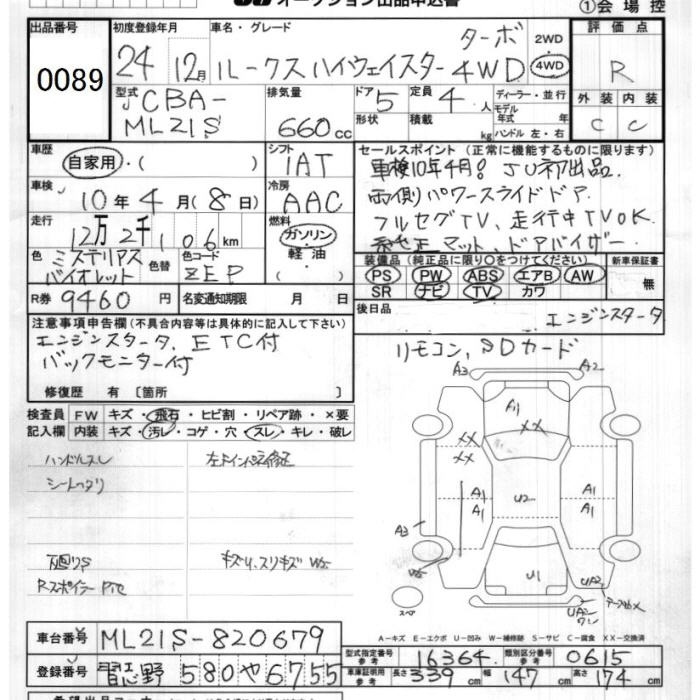 オークション出品申込書
①会場控
出品番号
0089
初度登録年月
24 12月
車名・グレード
ターボ
ルークスハイウェイスター4WD
2WD
4WD
評価点
R
外装 内装
C C
型式
CBA-
ML21S
排気量
660cc
ドア
5
定員
4人
形状
積載
kg
ディーラー・並行
モデル
年式 年
ハンドル 左・右
車歴
自家用・( )
シフト
1AT
車検
10年4月(8日)
冷房
AAC
走行
12万2千106km
燃料
ガソリン
軽油
( )
色
ミステリアス
バイオレット
色替
色コード
ZEP
R券
9460円
名変通知期限 月 日
セールスポイント(正常に機能するものに限ります)
車検10年4月! JU初出品.
両側パワースライドドア.
フルセグTV、走行中TVOK.
純正マット、ドアバイザー
装備品(純正品に限り○をつけてください)
PS PW ABS エアB AW
SR ナビ TV カワ
新車保証書
無
後日品
エンジンスタータ
リモコン、SDカード
注意事項申告欄(不具合内容等は具体的に記入して下さい)
エンジンスタータ、ETC付
バックモニター付
修復歴 有 〔箇所 〕
検査員
記入欄
FW キズ・飛石・ヒビ割・リペア跡・×要
内装 キズ・汚レ・コゲ・穴・スレ・キレ・破レ
ハンドルスレ
シートヘタリ
下廻りS
キズU、スリキズ W5
Rスポイラー
A3 A2
A1
XX XX
XX
A1 A1
A1 U2 A1
A3
W5
U1 UA2
UA2
スペア
A-キズ E-エクボ U-凹み W-補修跡 S-サビ C-腐食 XX-交換済
車台番号
ML21S-820679
登録番号
習志野 580 や 6755
型式指定番号
参考
16364
類別区分番号
参考
0615
車庫証明用
参考
長さ 339cm
幅 147cm
高さ 174cm